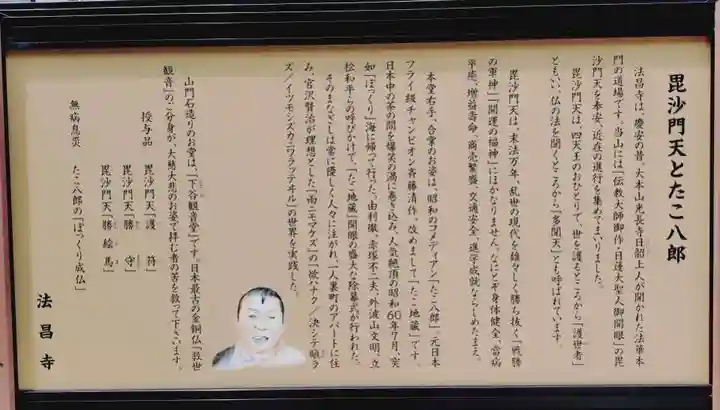 毘沙門天とたこ八郎
法昌寺は、慶安の昔、大本山光長寺日韶上人が開かれた法華本
門の道場です。当山には「伝教大師御作・日蓮大聖人御開眼」の毘
沙門天を奉安、近在の進行を集めてまいりました。
毘沙門天は、四天王のおひとりで、世を護るところから「護世者」
ともいい、仏の法を聞くところから「多聞天」とも呼ばれています。
毘沙門天は、末法万年、乱世の現代を雄々しく勝ち抜く「戦勝
の軍神」「開運の福神」にほかなりません。なにとぞ身体健全、当病
平癒、増益寿命、商売繁盛、交通安全、進学成就ならしめたまえ。
本堂右手、合掌のお姿は、昭和のコメディアン「たこ八郎」。元日本
フライ級チャンピオン斉藤清作。改めまして「たこ地蔵」です。
日本中の茶の間を爆笑の渦に巻き込み、人気絶頂の昭和60年7月、突
如「ぽっくり」海に帰って行った。由利徹、赤塚不二夫、外波山文明、立
松和平らの呼びかけで、「たこ地蔵」開眼の盛大な除幕式が行われた。
そのまなざしは常に優しく人々に注がれ、一人裏町のアパートに住
み、宮沢賢治が理想とした「雨ニモマケズ」の「欲ハナク／決シテ瞋ラ
ズ／イツモシズカニワラッテヰル」の世界を実践した。
山門石造りのお堂は、「下谷観音堂」です。日本最古の金銅仏「救世
観音」のご分身が、大慈大悲のお姿で拝む者の苦を救って下さいます。
授与品
毘沙門天「護符」
毘沙門天「勝守」
毘沙門天「勝絵馬」
無病息災 たこ八郎の「ぽっくり成仏」
法昌寺